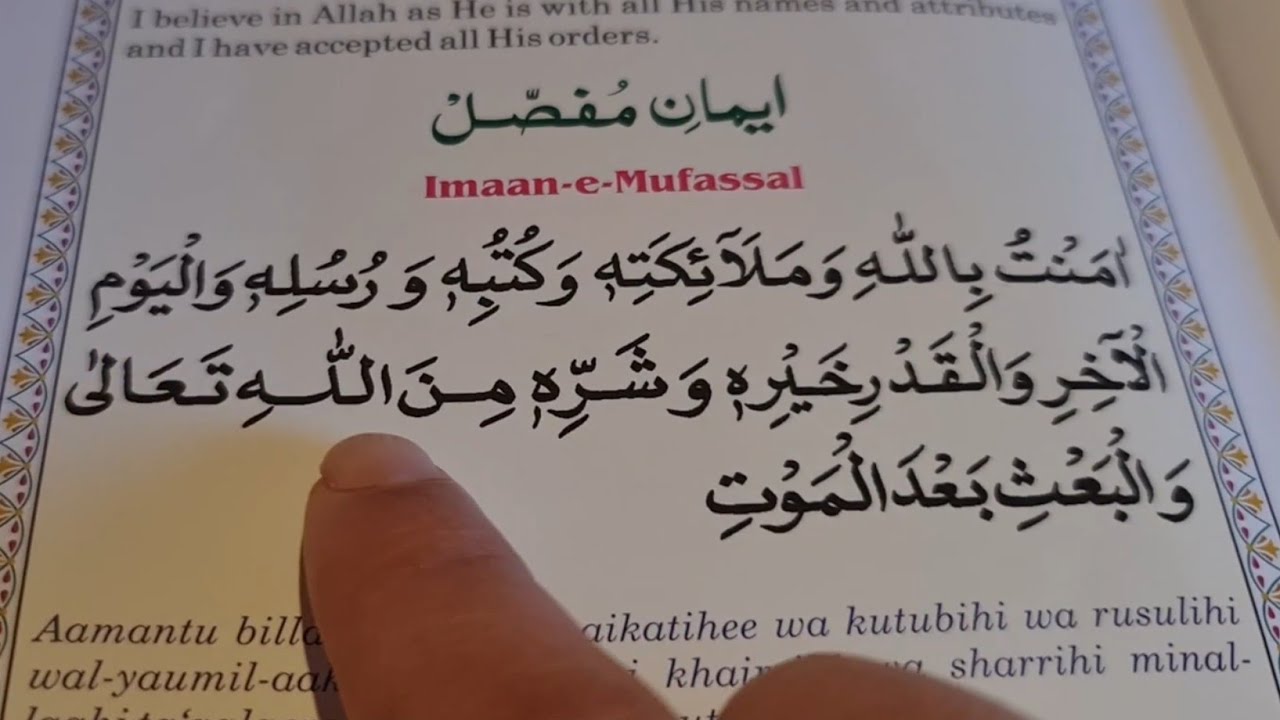 I believe in Allah as He is with all His names and attributes
and I have accepted all His orders.
ایمانِ مُفصّلْ
Imaan-e-Mufassal
اٰمَنْتُ بِاللّٰهِ وَمَلَآئِكَتِهٖ وَكُتُبِهٖ وَرُسُلِهٖ وَالْيَوْمِ
الْاٰخِرِ وَالْقَدْرِخَيْرِهٖ وَشَرِّهٖ مِنَ اللّٰهِ تَعَالٰى
وَالْبَعْثِ بَعْدَالْمَوْتِ
Aamantu aikatihee wa kutubihi wa rusulihi
wal-yaumil- sharrihi minal-